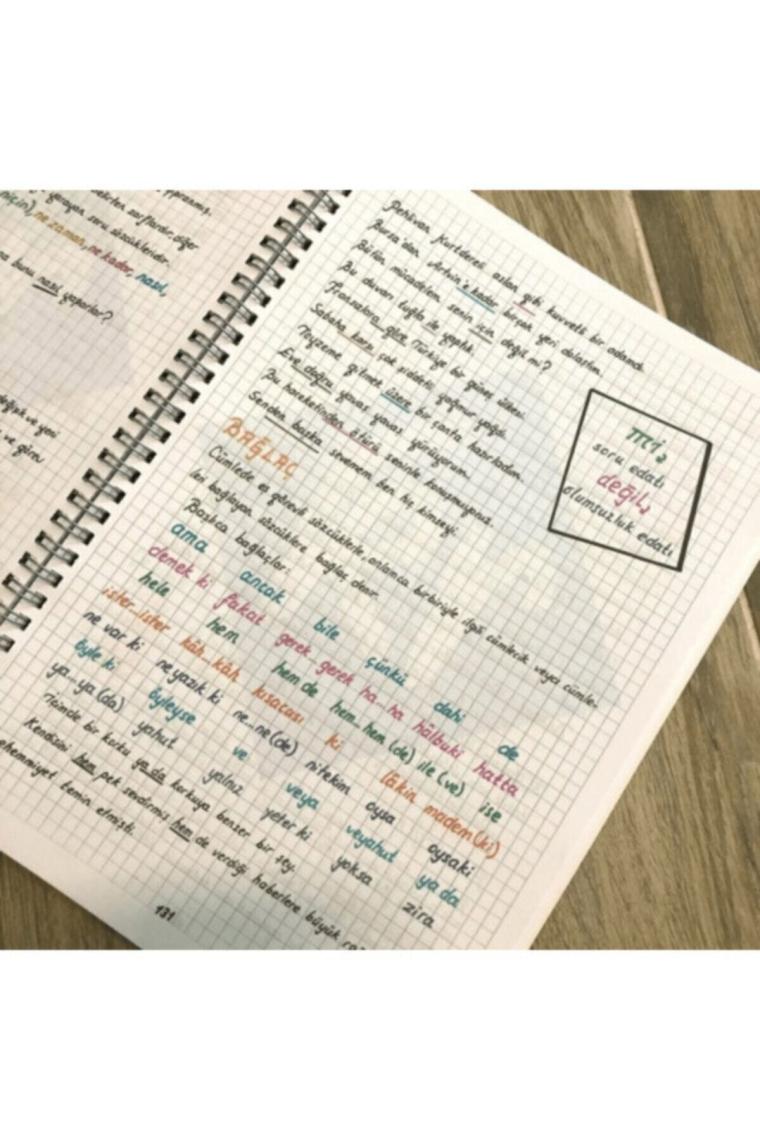 niçin), ne zaman, ne kadar, nasıl,
bunu nasıl yaparlar?
değişik ve yeni
ve göre
Pehlivan Kurtdereli aslan gibi kuvvetli bir adamdı.
Bursa'dan Artvin'e kadar birçok yeri dolaştım.
Bütün mücadelem senin için değil mi?
Bu duvarı tuğla ile yaptık.
Fransızlara göre Türkiye bir güneş ülkesi.
Sabaha karşı çok şiddetli yağmur yağdı.
Teyzeme gitmek üzere bir pasta hazırladım.
Eve doğru yavaş yavaş yürüyorum.
Bu hareketinden ötürü seninle konuşmuyorum.
Senden başka sevemem ben hiç kimseyi.
mi,
soru edatı
değil,
olumsuzluk edatı
BAĞLAÇ
Cümlede eş görevli sözcüklerle, anlamca birbiriyle ilgili cümlecik veya cümle-
leri bağlayan sözcüklere bağlaç denir.
Başlıca bağlaçlar:
ama ancak bile çünkü dahi de
demek ki fakat gerek gerek ha...ha hâlbuki hatta
hele hem hem de hem...hem (de) ile (ve) ise
ister...ister kâh...kâh kısacası ki lâkin madem(ki)
ne var ki ne yazık ki ne...ne (de) nitekim oysa oysaki
öyle ki öyleyse ve veya veyahut ya da
ya...ya (da) yahut yalnız yeter ki yoksa zira
İçimde bir korku ya da korkuya benzer bir şey.
Kendisini hem pek sevdirmiş hem de verdiği haberlere büyük
ehemmiyet temin etmişti.
131